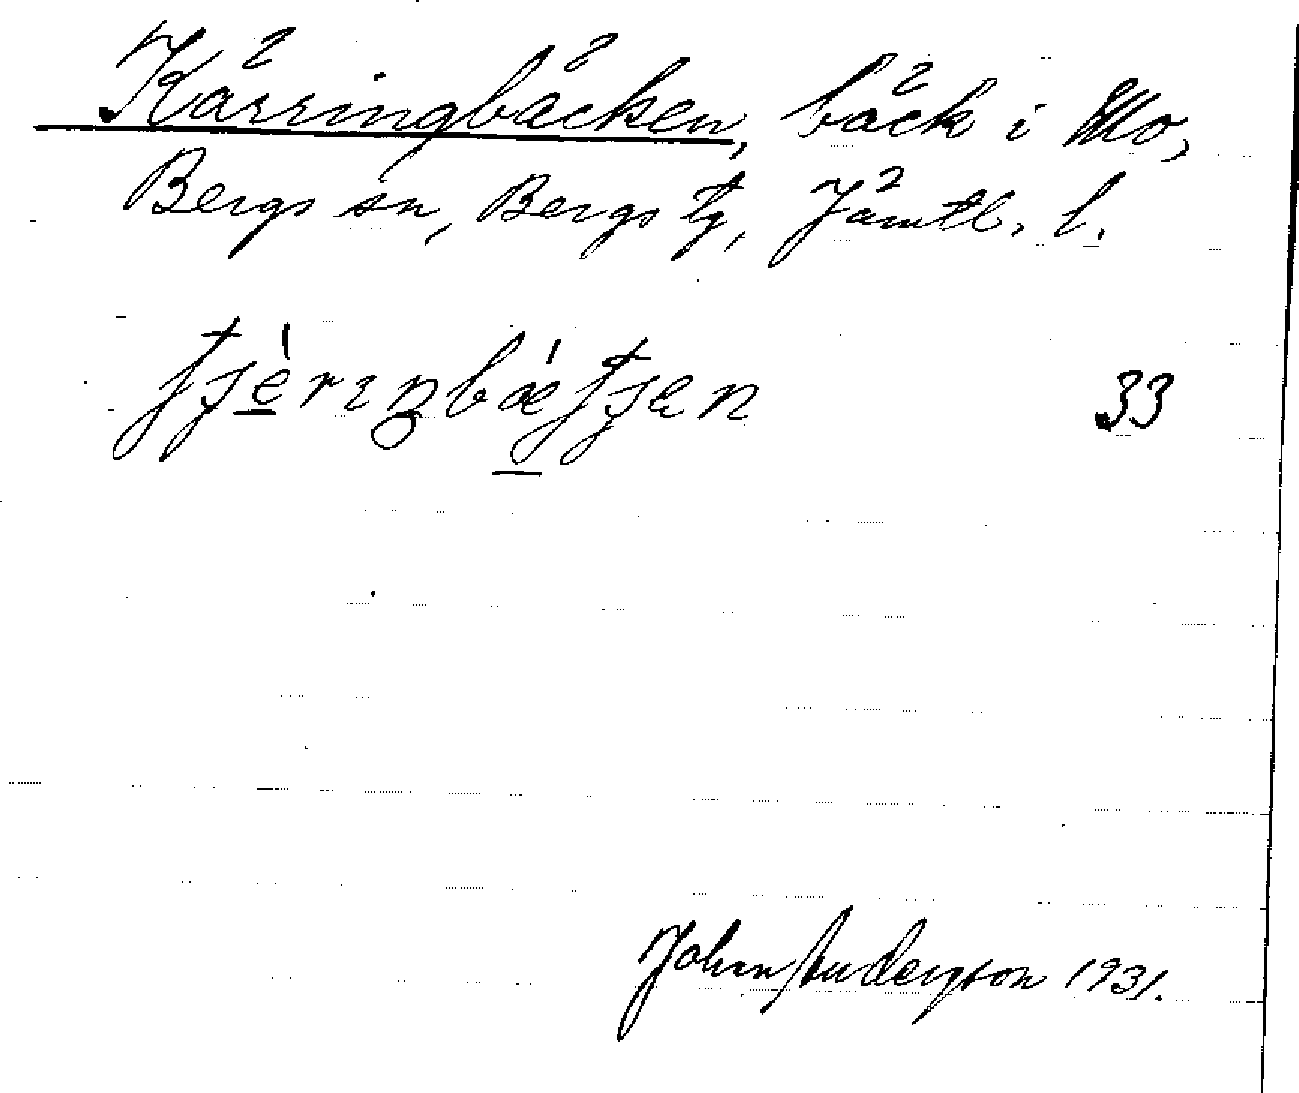 Kärringbäcken, bäck i Mo,
Bergs sn, Bergs tg, Jämtl. l.
33
John Andersson 1931.